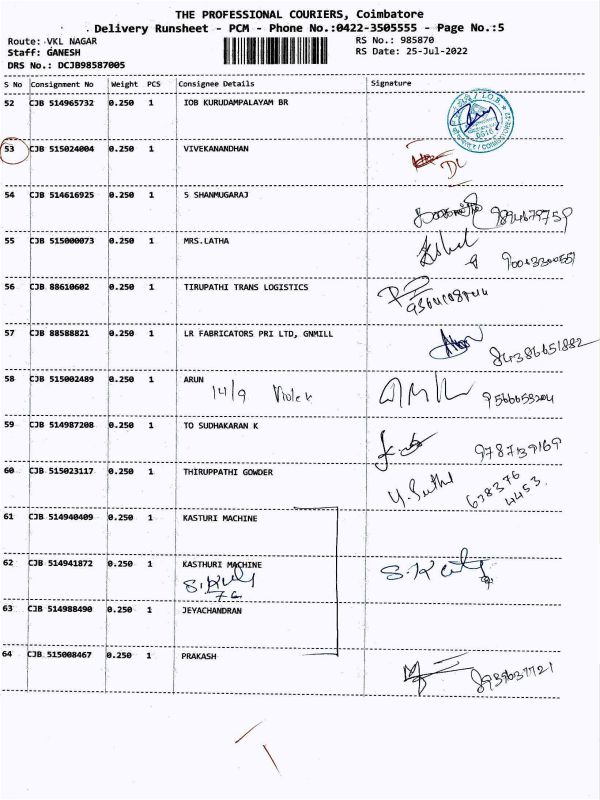 THE PROFESSIONAL COURIERS, Coimbatore
Delivery Runsheet - PCM - Phone No.:0422-3505555 - Page No.:5
Route: VKL NAGAR
RS No.: 985870
Staff: GANESH
RS Date: 25-Jul-2022
DRS No.: DCJB98587005
S No Consignment No Weight PCS Consignee Details Signature
52 CJB 514965732 0.250 1 IOB KURUDAMPALAYAM BR
53 CJB 515024004 0.250 1 VIVEKANANDHAN
DL
54 CJB 514616925 0.250 1 S SHANMUGARAJ
9894679759
55 CJB 515000073 0.250 1 MRS.LATHA
56 CJB 88610602 0.250 1 TIRUPATHI TRANS LOGISTICS
57 CJB 88588821 0.250 1 LR FABRICATORS PRI LTD, GNMILL
58 CJB 515002489 0.250 1 ARUN
14/9
59 CJB 514987208 0.250 1 TO SUDHAKARAN K
9787139169
60 CJB 515023117 0.250 1 THIRUPPATHI GOWDER
638376
4453.
61 CJB 514940409 0.250 1 KASTURI MACHINE
62 CJB 514941872 0.250 1 KASTHURI MACHINE
63 CJB 514988490 0.250 1 JEYACHANDRAN
64 CJB 515008467 0.250 1 PRAKASH